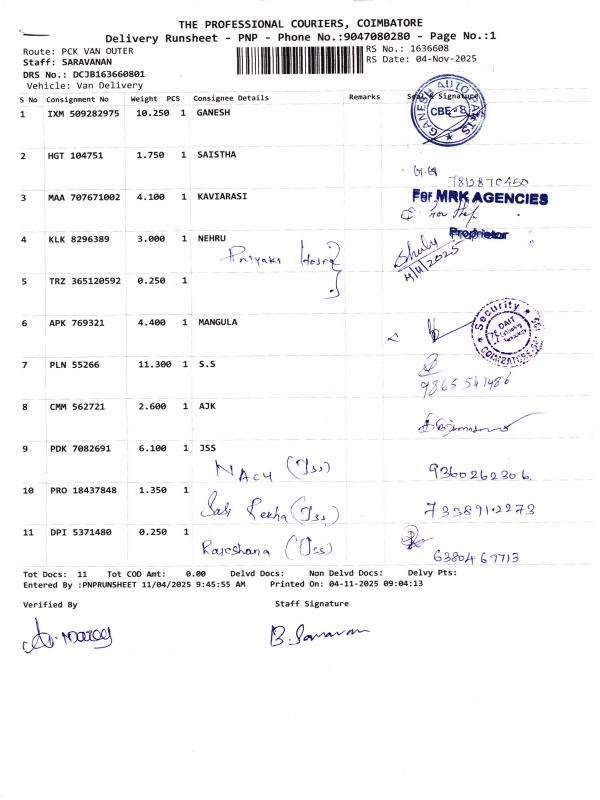 THE PROFESSIONAL COURIERS, COIMBATORE
Delivery Runsheet - PNP - Phone No.:9047080280 - Page No.:1
Route: PCK VAN OUTER
RS No.: 1636608
Staff: SARAVANAN
RS Date: 04-Nov-2025
DRS No.: DCJB163660801
Vehicle: Van Delivery
S No Consignment No Weight PCS Consignee Details Remarks Seal & Signature
1 IXM 509282975 10.250 1 GANESH
GANESH AUTO PARTS
CBE
2 HGT 104751 1.750 1 SAISTHA
7812870450
3 MAA 707671002 4.100 1 KAVIARASI
For MRK AGENCIES
Proprietor
4 KLK 8296389 3.000 1 NEHRU
Priyaka
4/11/2025
5 TRZ 365120592 0.250 1
6 APK 769321 4.400 1 MANGULA
Security
7 PLN 55266 11.300 1 S.S
9865541486
8 CMM 562721 2.600 1 AJK
9 PDK 7082691 6.100 1 JSS
NACY (Jss)
9360262306
10 PRO 18437848 1.350 1
Rekha (Jss)
7338912273
11 DPI 5371480 0.250 1
(Jss)
6380469713
Tot Docs: 11 Tot COD Amt: 0.00 Delvd Docs: Non Delvd Docs: Delvy Pts:
Entered By :PNPRUNSHEET 11/04/2025 9:45:55 AM Printed On: 04-11-2025 09:04:13
Verified By Staff Signature
B. Saravanan